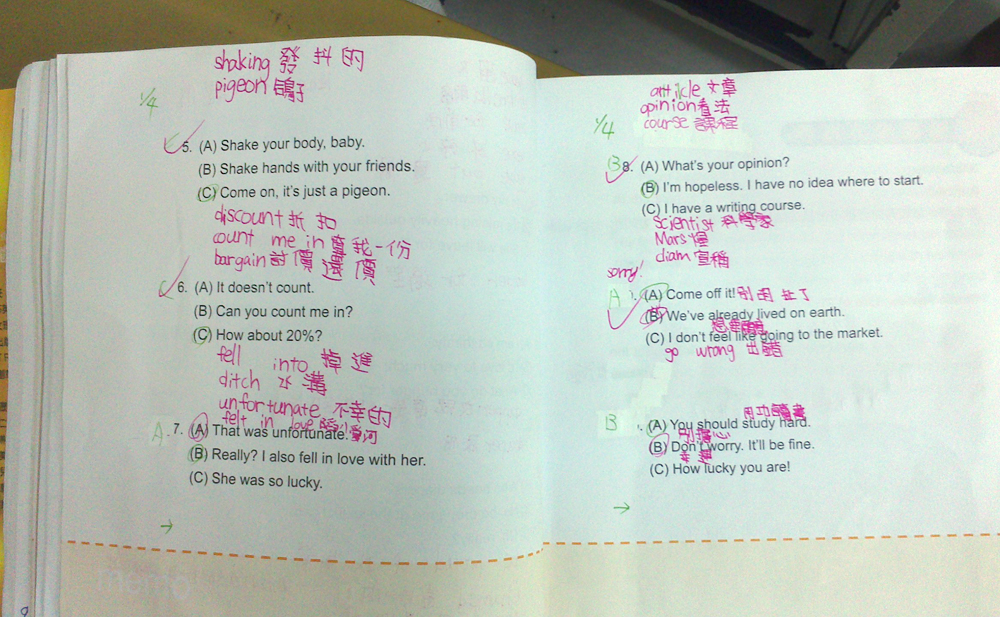 shaking 發抖的
pigeon 鴿子
1/4
C 5. (A) Shake your body, baby.
(B) Shake hands with your friends.
(C) Come on, it's just a pigeon.
discount 折扣
count me in 算我一份
bargain 討價還價
C 6. (A) It doesn't count.
(B) Can you count me in?
(C) How about 20%?
fell into 掉進
ditch 水溝
unfortunate 不幸的
felt in love
A. 7. (A) That was unfortunate.
(B) Really? I also fell in love with her.
(C) She was so lucky.
→
memo
article 文章
opinion 看法
1/4
course 課程
B 8. (A) What's your opinion?
(B) I'm hopeless. I have no idea where to start.
(C) I have a writing course.
scientist 科學家
Mars
diam 宣稱
sorry!
A (A) Come off it! 別胡扯了
(B) We've already lived on earth.
(C) I don't feel like going to the market.
go wrong 出錯
用功讀書
B (A) You should study hard.
別擔心
(B) Don't worry. It'll be fine.
幸運
(C) How lucky you are!
→
9